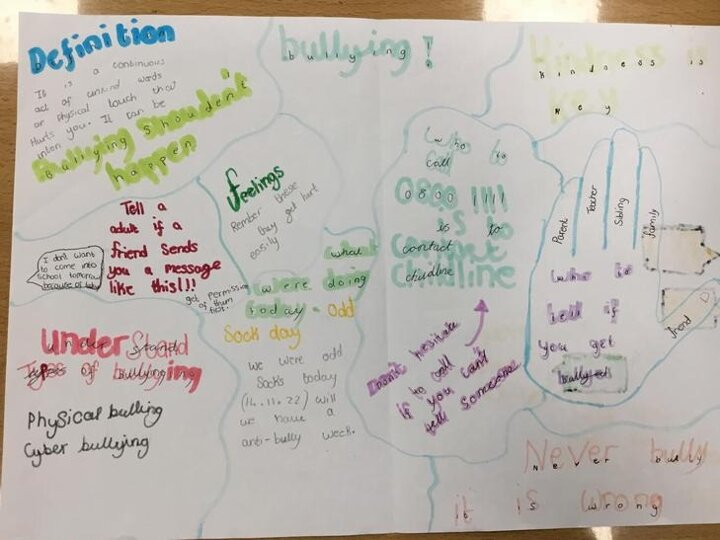 Definition
It is a continuous
act of unkind words
or physical touch that
Hurts you. It can be
inten
Bullying shouldn't
happen
bullying!
Kindness is
Key
Feelings
Rember these
they get hurt
easily
Tell a
adult if a
friend sends
you a message
like this!!
get permission
of them
first.
I don't want
to come into
school tomorrow
because of
what
we were doing
today - Odd
Sock day
we were odd
Socks today
(14.11.22) will
we have a
anti-bully week.
Under Stand
Types of bullying
Physical bulling
Cyber bullying
who to
call
0800 1111
is to
contact
childline
Don't hesitate
to call
if you can't
tell someone
Parent
Teacher
Sibling
family
friend
who to
tell if
you get
bullyed
Never bully
it is wrong